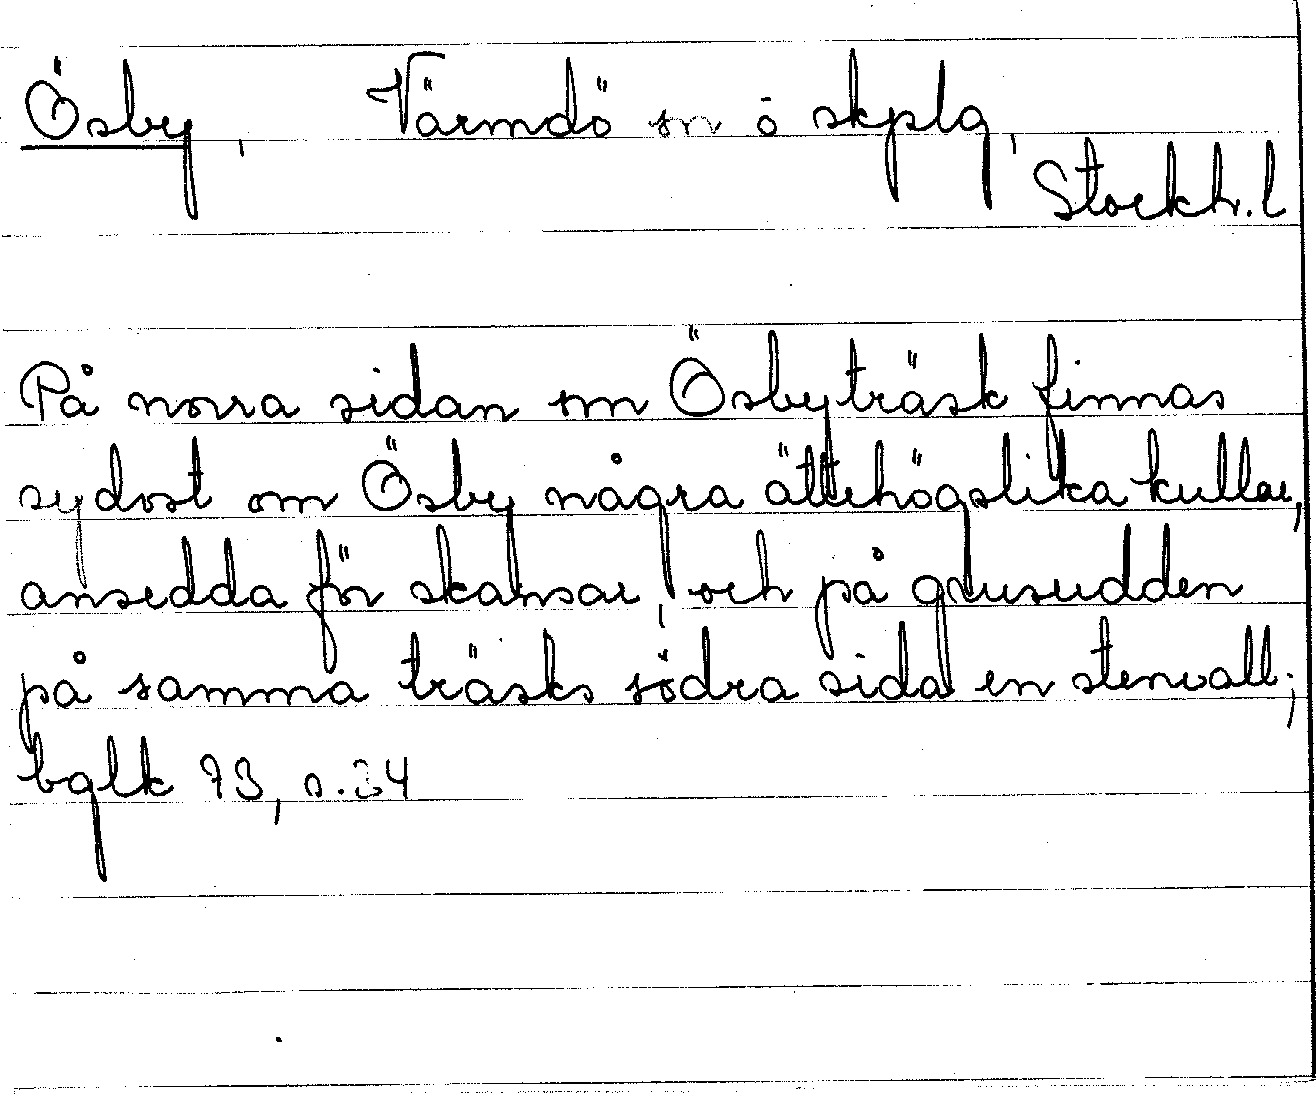 Ösby, Värmdö sn o skplg,
Stockh. l
På norra sidan om Ösbyträsk finnas
sydost om Ösby några ättehögslika kullar,
ansedda för skansar, och på grusudden
på samma träsks södra sida en stenvall;
bglk 93, s. 34